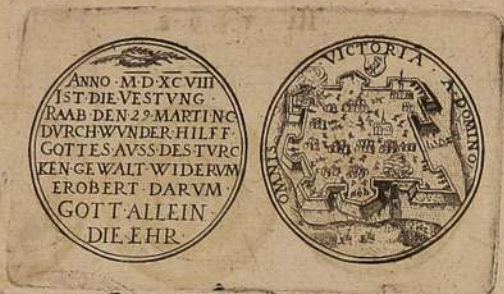 ANNO · M · D · XCVIII
IST · DIE · VESTVNG ·
RAAB · DEN · 29 · MARTI · NC
DVRCH · WVNDER · HILFF ·
GOTTES · AVSS · DES · TVRC
KEN · GEWALT · WIDERVM
EROBERT · DARVM ·
GOTT · ALLEIN ·
DIE · EHR ·
OMNIS · VICTORIA · A · DOMINO